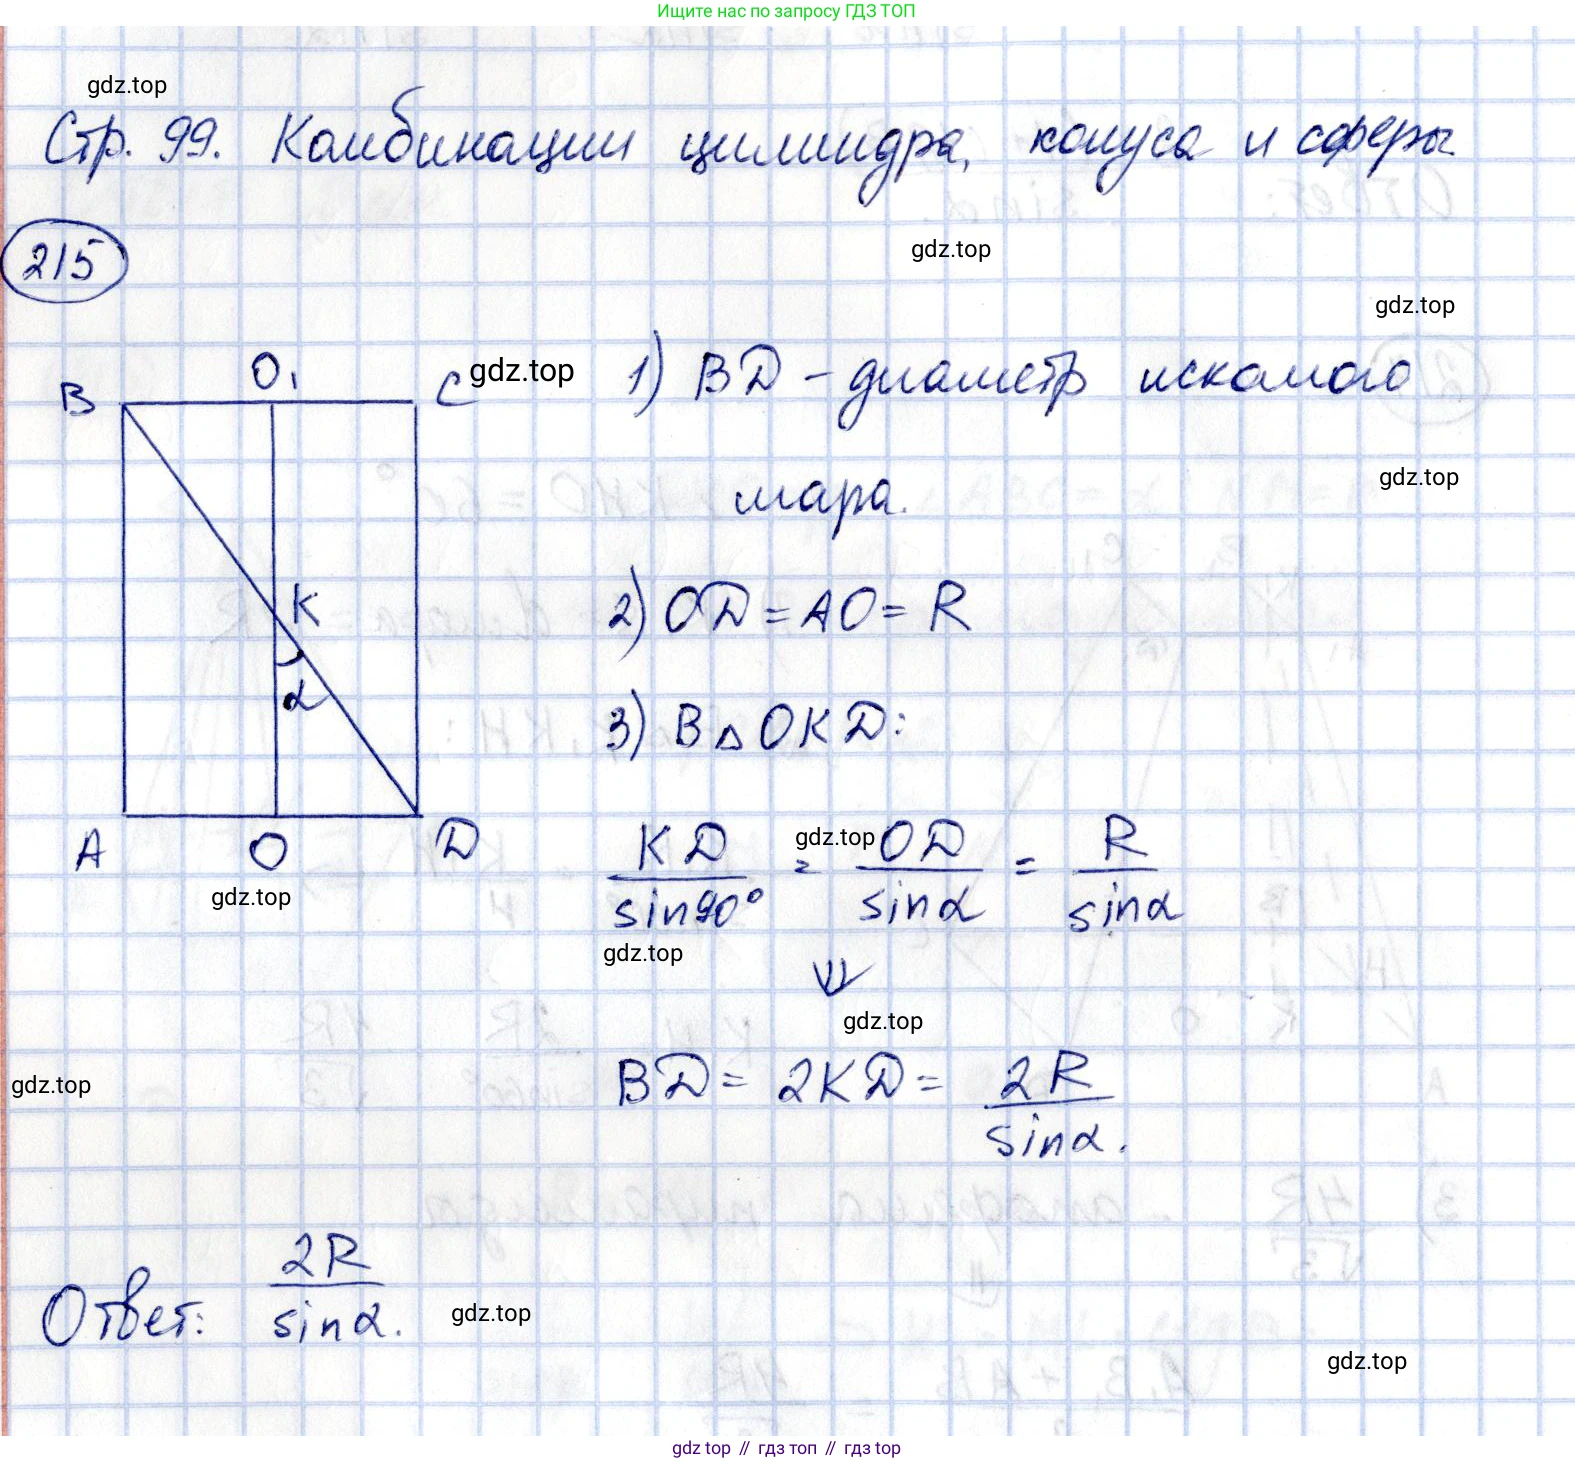 Ищите нас по запросу ГДЗ ТОП
gdz.top
Стр. 99. Комбинации цилиндра, конуса и сферы
215
gdz.top
gdz.top
B O₁ C gdz.top
1) BD - диаметр искомого
шара.
gdz.top
K
α
2) OD = AO = R
3) В △ OKD:
A O D
gdz.top
KD/sin90° = OD/sinα = R/sinα
gdz.top
gdz.top
⇓
gdz.top
gdz.top
BD = 2KD = 2R/sinα.
Ответ: 2R/sinα.
gdz.top
gdz.top
gdz.top // гдз топ // гдз top